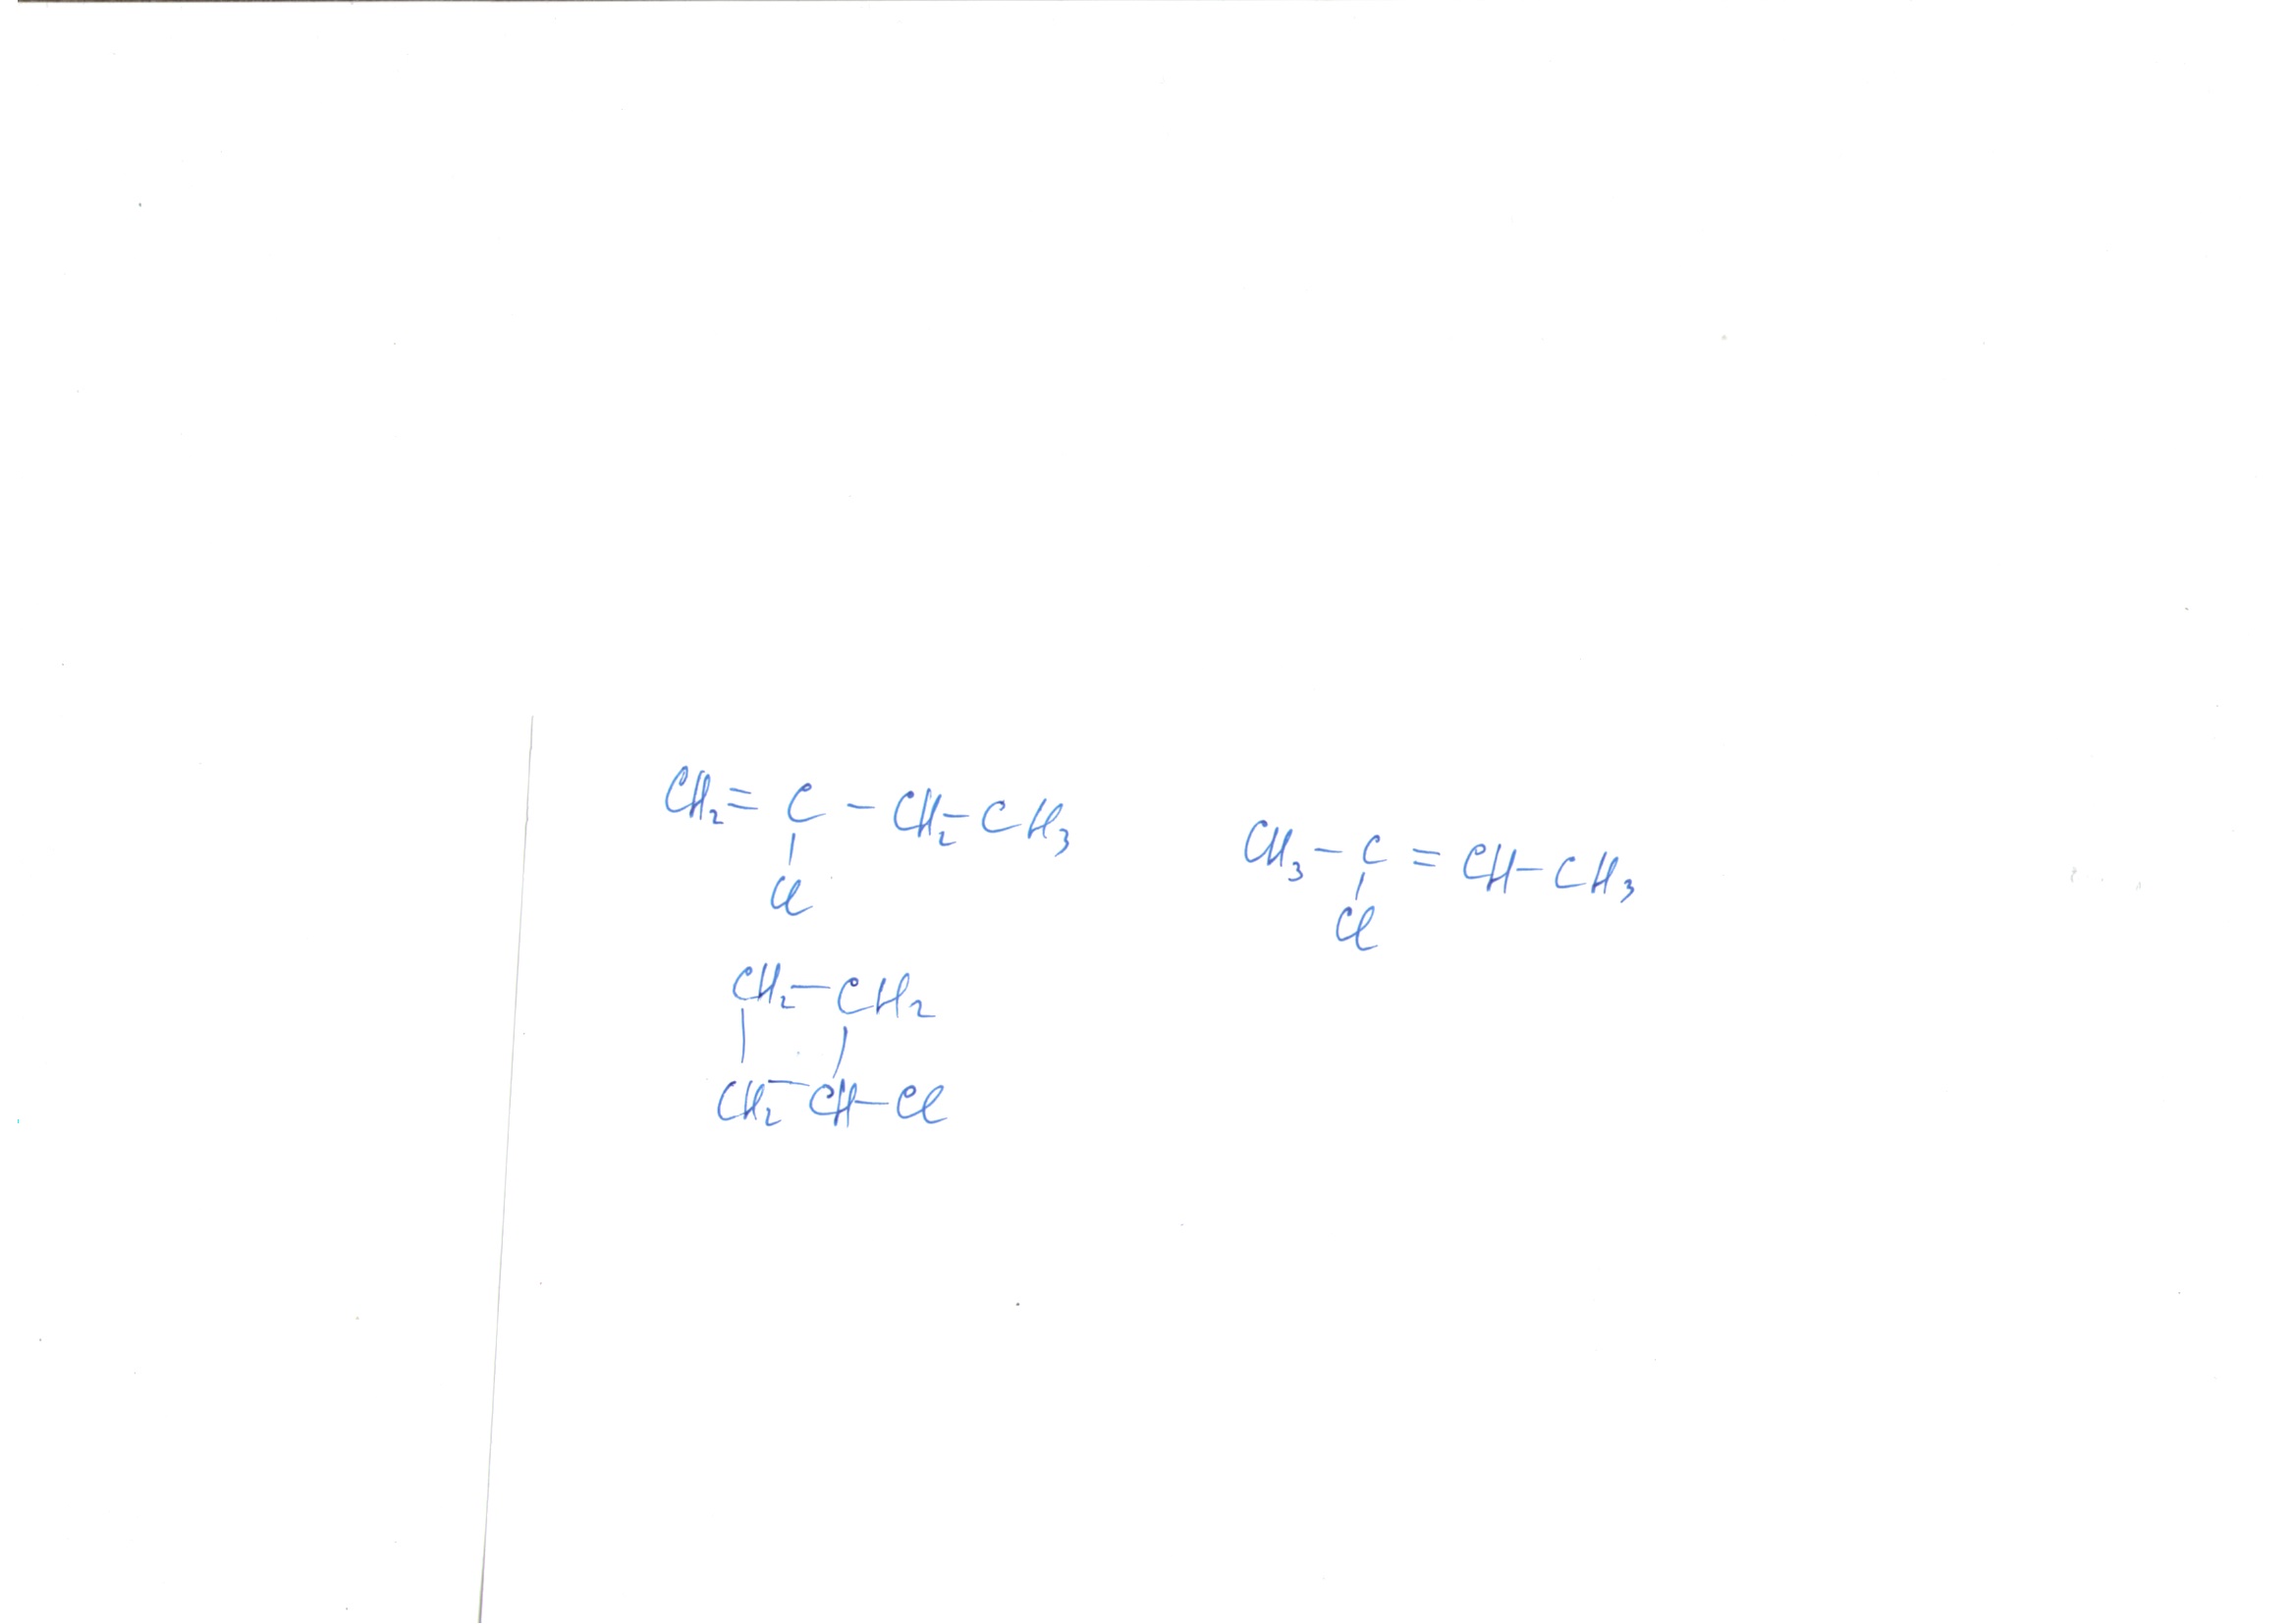 CH₂ = C - CH₂ - CH₃
|
Cl
CH₃ - C = CH - CH₃
|
Cl
CH₂ - CH₂
| |
CH₂ - CH - Cl